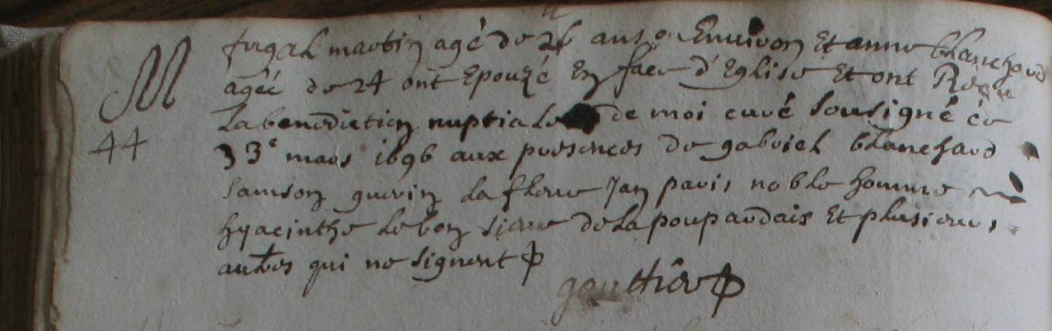 M
44
fugal martin agé de 24 ans ou Environ Et anne blanchard
agéé de 24 ont Epouzé En face d'Eglise Et ont Receu
La benediction nuptiale de moi curé sousigné ce
mars 1696 aux presences de gabriel blanchard
samson guerin la fleur Jan paris noble homme
hyacinthe lebon sieur de la poupardais Et plusieurs
autres qui ne signent
gaultier